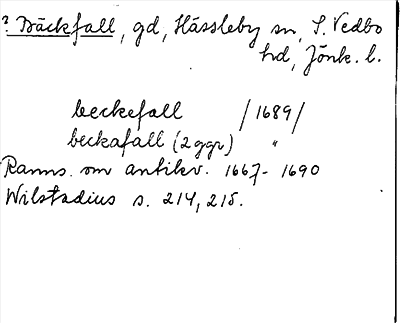 ? Bäckfall, gd, Hässleby sn, S. Vedbo
hd, Jönk. l.
beckefall /1689/
beckafall (2 ggr) "
Ranns. om antikv. 1667-1690
Wilstadius s. 214, 215.